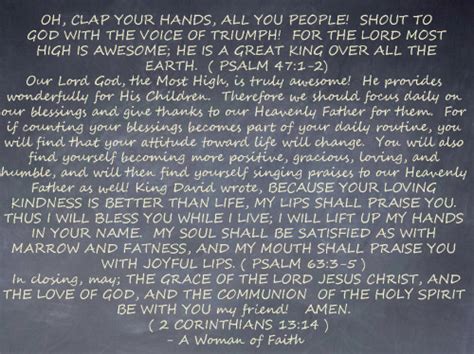 OH, CLAP YOUR HANDS, ALL YOU PEOPLE! SHOUT TO
GOD WITH THE VOICE OF TRIUMPH! FOR THE LORD MOST
HIGH IS AWESOME; HE IS A GREAT KING OVER ALL THE
EARTH. ( PSALM 47:1-2)
Our Lord God, the Most High, is truly awesome! He provides
wonderfully for His Children. Therefore we should focus daily on
our blessings and give thanks to our Heavenly Father for them. For
if counting your blessings becomes part of your daily routine, you
will find that your attitude toward life will change. You will also
find yourself becoming more positive, gracious, loving, and
humble, and will then find yourself singing praises to our Heavenly
Father as well! King David wrote, BECAUSE YOUR LOVING
KINDNESS IS BETTER THAN LIFE, MY LIPS SHALL PRAISE YOU.
THUS I WILL BLESS YOU WHILE I LIVE; I WILL LIFT UP MY HANDS
IN YOUR NAME. MY SOUL SHALL BE SATISFIED AS WITH
MARROW AND FATNESS, AND MY MOUTH SHALL PRAISE YOU
WITH JOYFUL LIPS. ( PSALM 63:3-5 )
In closing, may; THE GRACE OF THE LORD JESUS CHRIST, AND
THE LOVE OF GOD, AND THE COMMUNION OF THE HOLY SPIRIT
BE WITH YOU my friend! AMEN.
( 2 CORINTHIANS 13:14 )
- A Woman of Faith